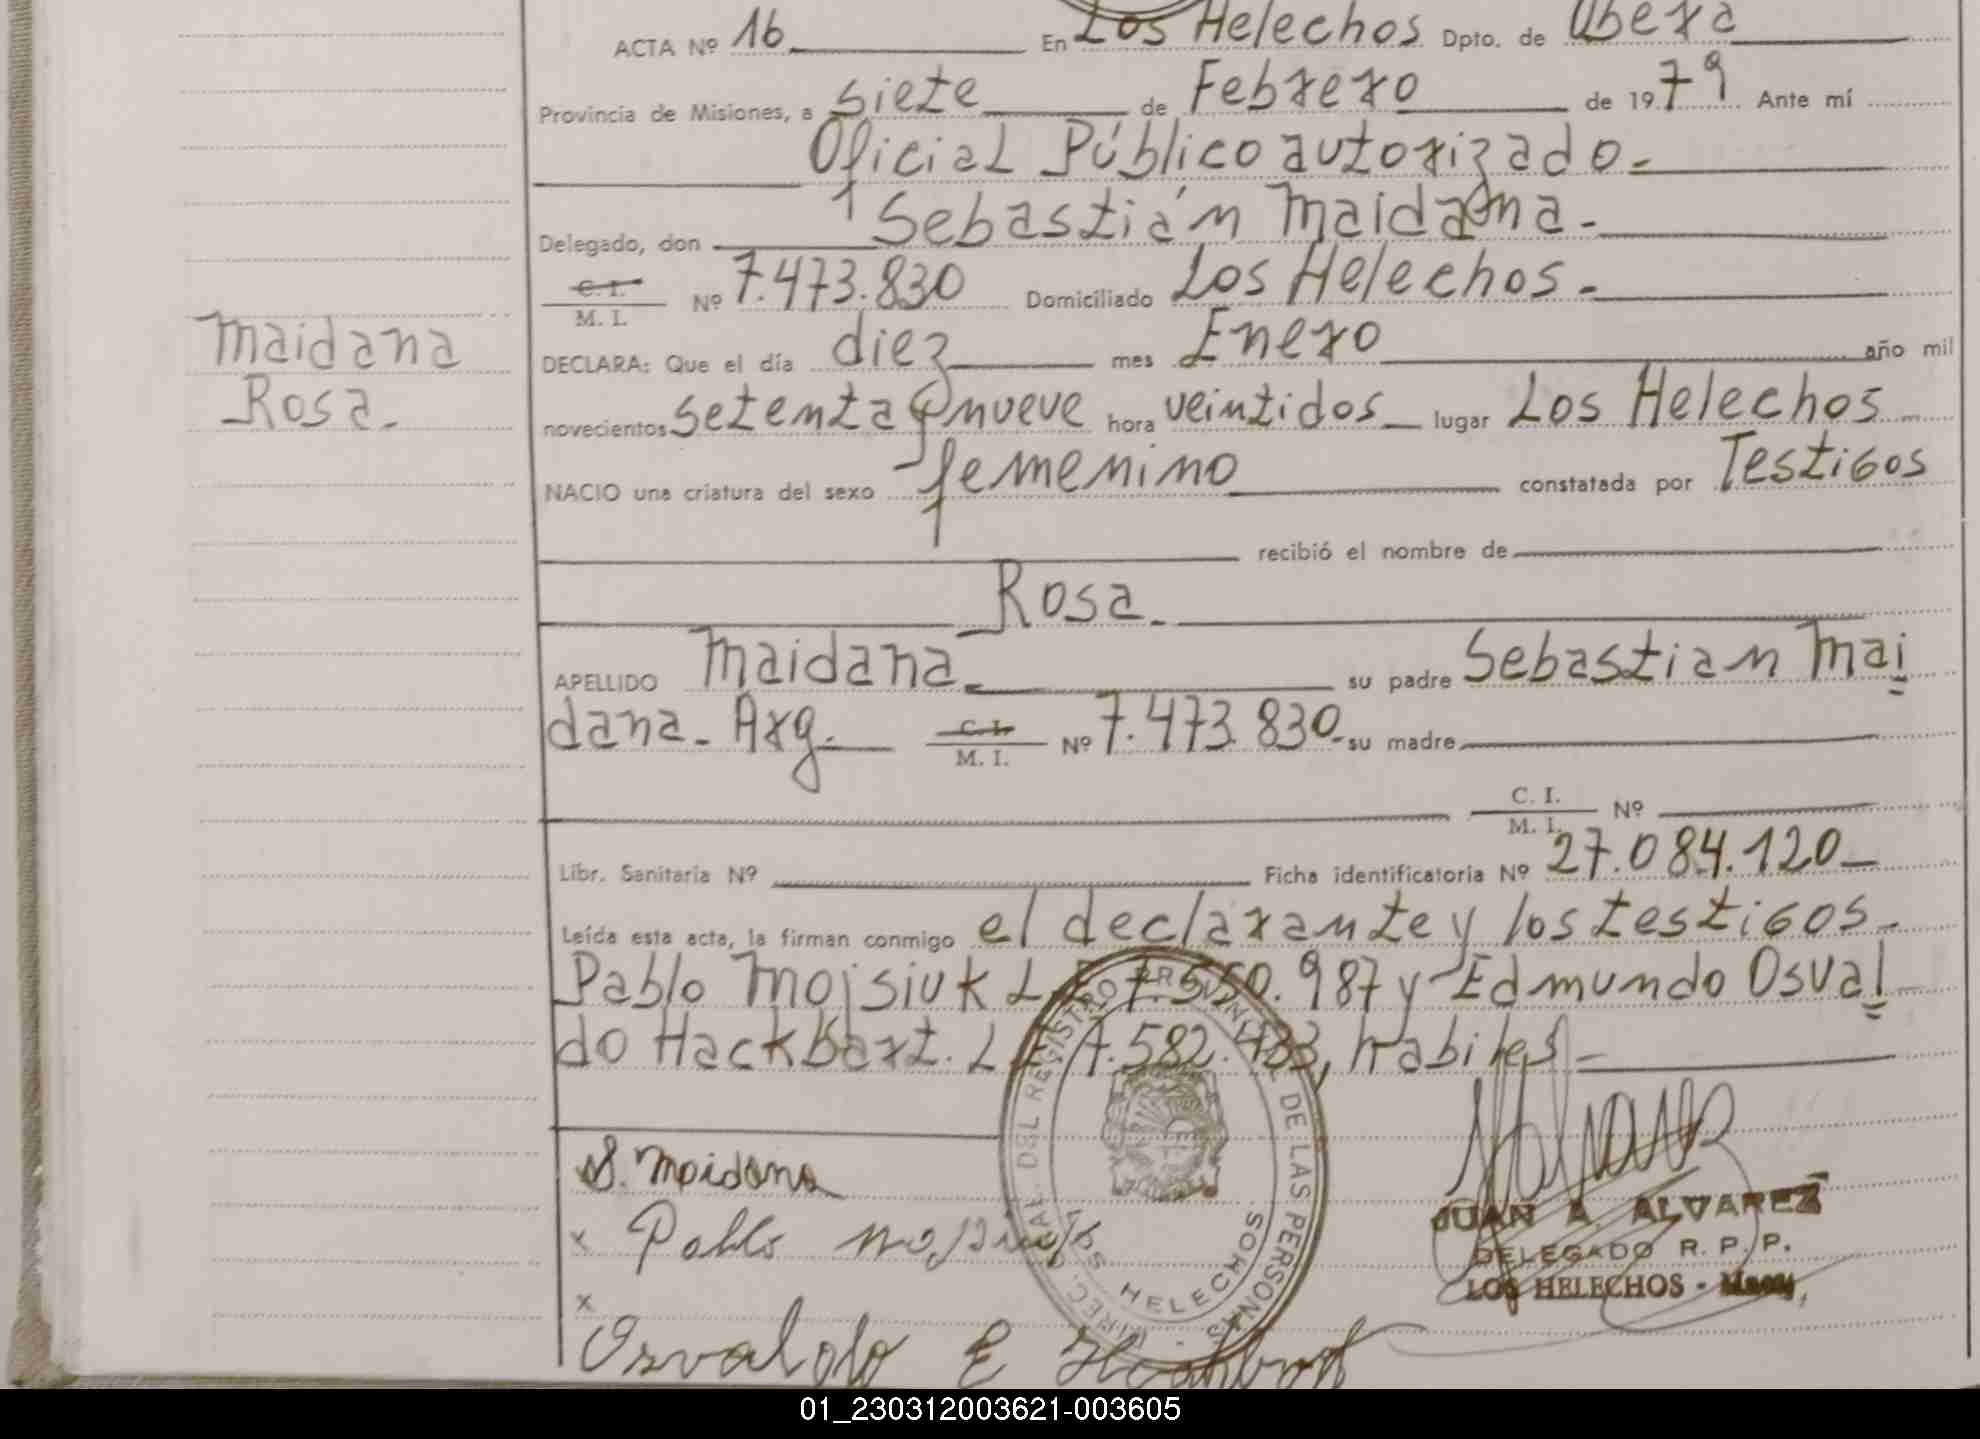 ACTA Nº 16 En Los Helechos Dpto. de Oberá
Provincia de Misiones, a siete de Febrero de 1979 Ante mí
Oficial Público autorizado.-
Delegado, don Sebastián Maidana.-
C. I.
M. I. Nº 7.473.830 Domiciliado Los Helechos.-
Maidana
Rosa.-
DECLARA: Que el día diez mes Enero año mil
novecientos setenta y nueve hora veintidos lugar Los Helechos
NACIO una criatura del sexo femenino constatada por Testigos
recibió el nombre de
Rosa.-
APELLIDO Maidana.- su padre Sebastian Mai
dana.- Arg. C. I.
M. I. Nº 7.473.830.- su madre
C. I.
M. I. Nº
Libr. Sanitaria Nº Ficha identificatoria Nº 27.084.120
Leída esta acta, la firman conmigo el declarante y los testigos.-
Pablo Mojsiuk L.E 7.550.987 y Edmundo Osval
do Hackbart. L.E 7.582.433, habiles
S. Maidana
x Pablo Mojsiuk
x
Osvaldo E Hackbart
DIREC. GRAL. DEL REGISTRO PROVINCIAL DE LAS PERSONAS
LOS HELECHOS
JUAN A. ALVAREZ
DELEGADO R. P. P.
LOS HELECHOS -
01_230312003621-003605